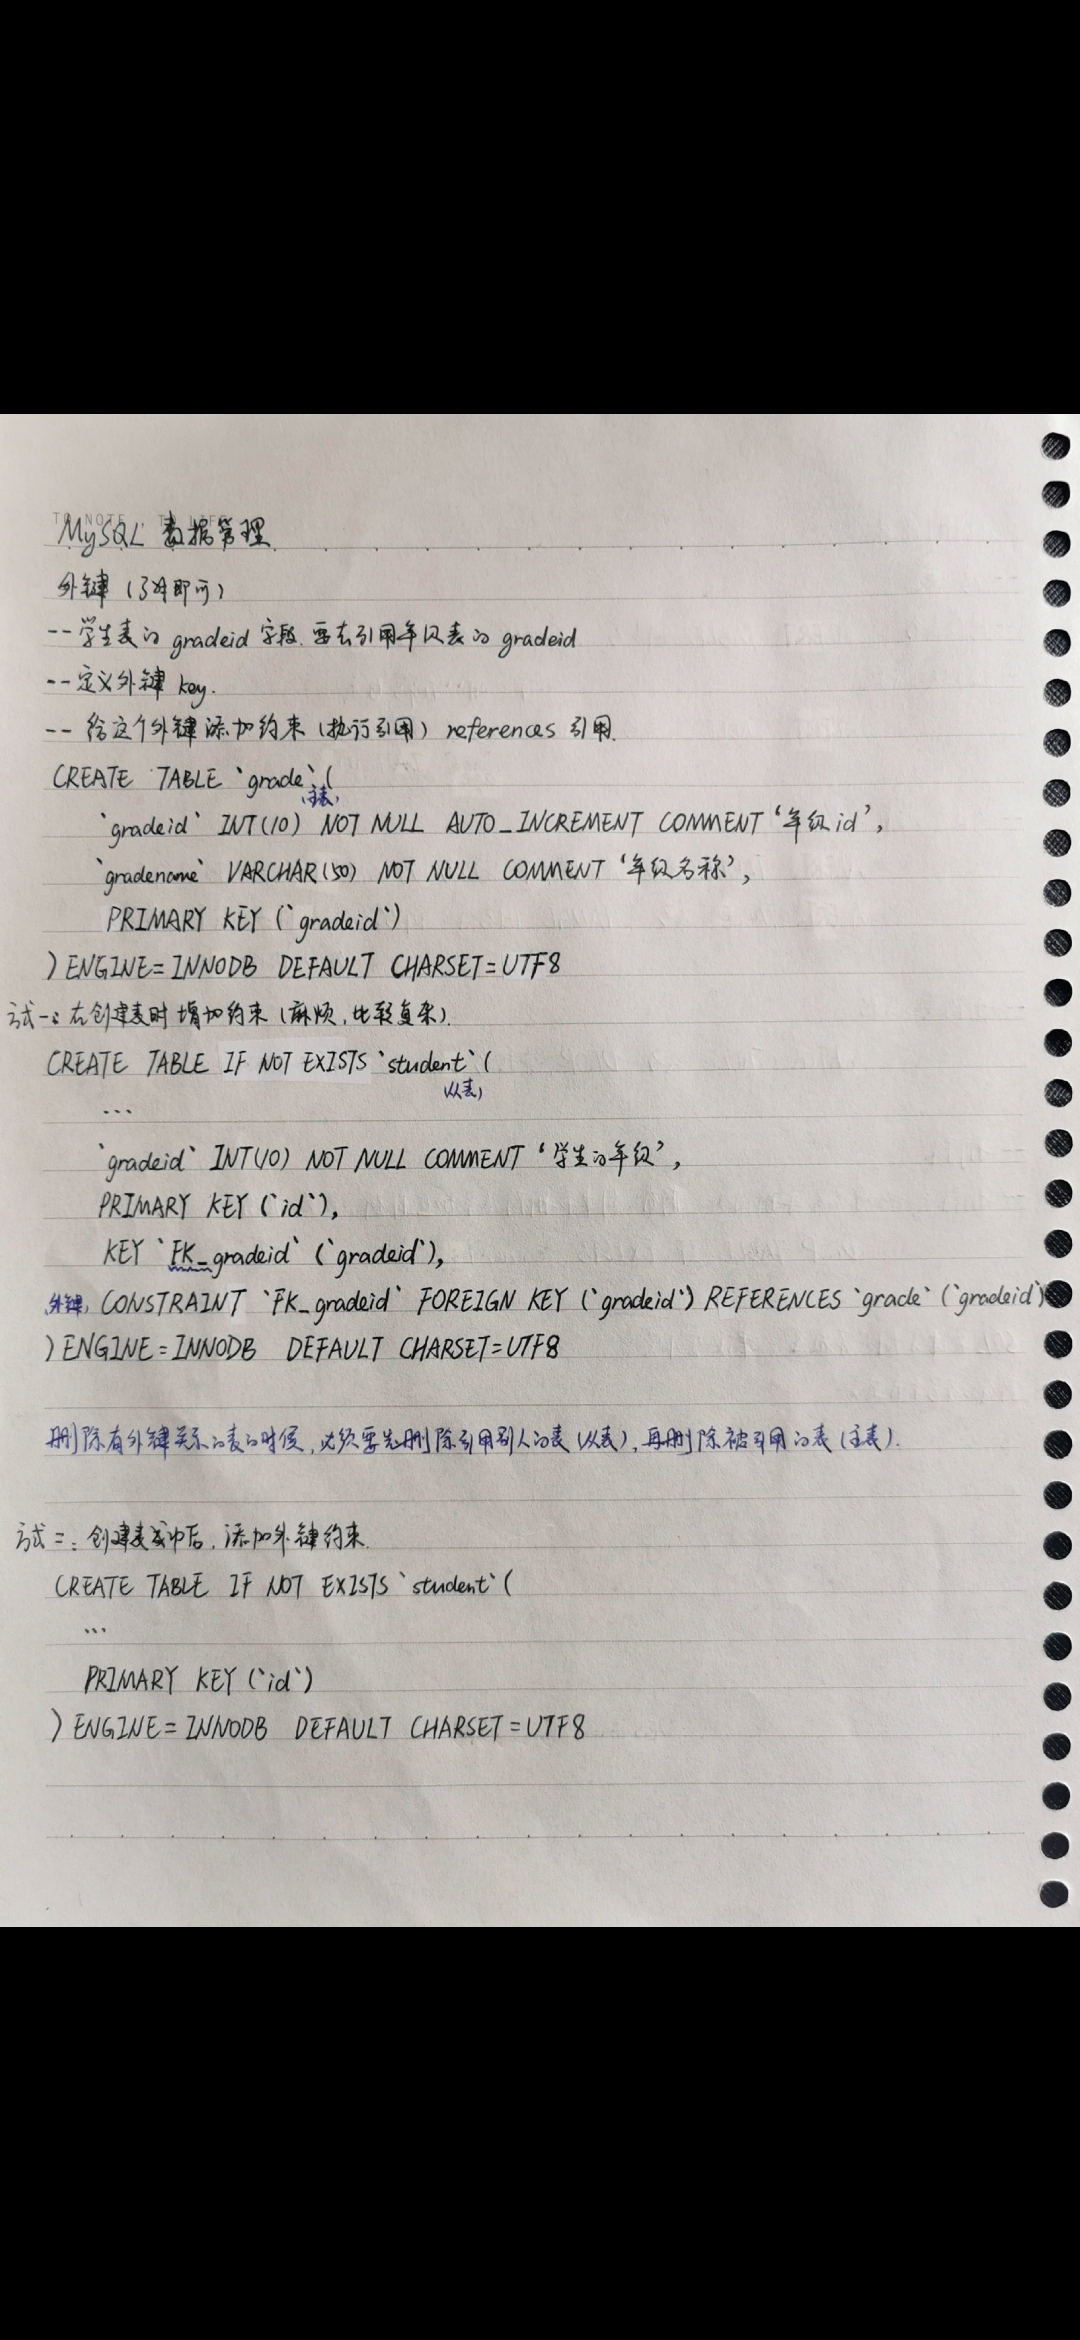 TO NOTE
MySQL 数据管理
外键 (了解即可)
-- 学生表的 gradeid 字段.要去引用年级表的 gradeid
-- 定义外键 key.
-- 给这个外键添加约束 (执行引用) references 引用.
CREATE TABLE `grade` (
(主表)
`gradeid` INT(10) NOT NULL AUTO_INCREMENT COMMENT '年级id',
`gradename` VARCHAR(50) NOT NULL COMMENT '年级名称',
PRIMARY KEY (`gradeid`)
) ENGINE=INNODB DEFAULT CHARSET=UTF8
方式一: 在创建表时增加约束 (麻烦,比较复杂).
CREATE TABLE IF NOT EXISTS `student` (
(从表)
...
`gradeid` INT(10) NOT NULL COMMENT '学生的年级',
PRIMARY KEY (`id`),
KEY `FK_gradeid` (`gradeid`),
外键, CONSTRAINT `FK_gradeid` FOREIGN KEY (`gradeid`) REFERENCES `grade` (`gradeid`)
) ENGINE=INNODB DEFAULT CHARSET=UTF8
删除有外键关系的表的时候,必须要先删除引用别人的表 (从表),再删除被引用的表 (主表).
方式二: 创建表成功后,添加外键约束.
CREATE TABLE IF NOT EXISTS `student` (
...
PRIMARY KEY (`id`)
) ENGINE=INNODB DEFAULT CHARSET=UTF8